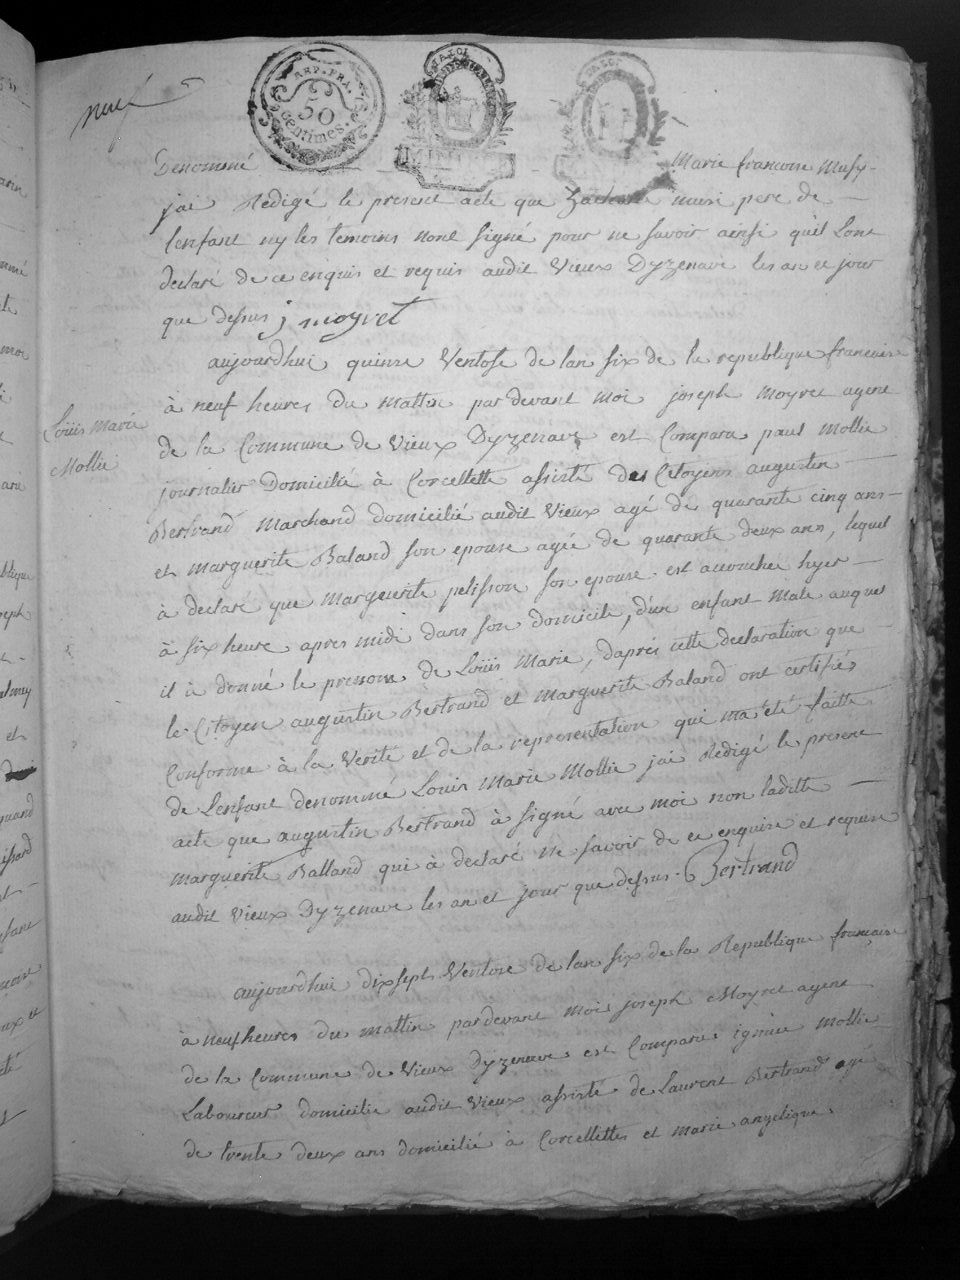 neuf
REP. FRA.
50
centimes.
LA LOI
LA LOI
Denommé Marie francoise Musy
jai Redigé le present acte que Zacharie musi pere de
Lenfant ny les temoins nont signé pour ne savoir aensi quil Lont
declaré de ce enquis et requis audit Vieux Dyzenave les an et jour
que dessus j moyret
aujourdhui quinze Ventose de lan six de la republique francaise
à neuf heures du mattin par devant moi joseph moyret agent
Loüis Marie
Mollie
de la Commune de Vieux Dyzenave est Comparu paul Mollie
journalier Domicilié à Corcellette assisté des Citoyens augustin
Bertrand Marchand domicilié audit Vieux agé de quarante cinq ans
et marguerite Baland son epouse agée de quarante deux ans, lequel
à declaré que marguerite pelisson son epouse est accouchée hyer
à six heure apres midi dans son domicile, d'un enfant Male auquel
il à donné le prenom de Loüis Marie, dapres cette declaration que
le Citoyen augustin Bertrand et marguerite Baland ont certifiés
Conforme à la Verité et de la representation qui ma été faitte
de Lenfant denommé Louis Marie Mollie jai Redigé le present
acte que augustin Bertrand à signé avec moi non laditte
marguerite Balland qui à declaré ne savoir de ce enquise et requise
audit Vieux Dyzenave les an et jour que dessus. Bertrand
aujourdhui dixsept Ventose de lan six de la Republique francaise
à neuf heures du mattin par devant moi joseph Moyret agent
de la Commune de Vieux Dyzenave est Comparu ignace Mollie
Laboureur domicilié audit Vieux assisté de Laurent Bertrand agé
de trente deux ans domicilié à Corcellettes et marie angelique